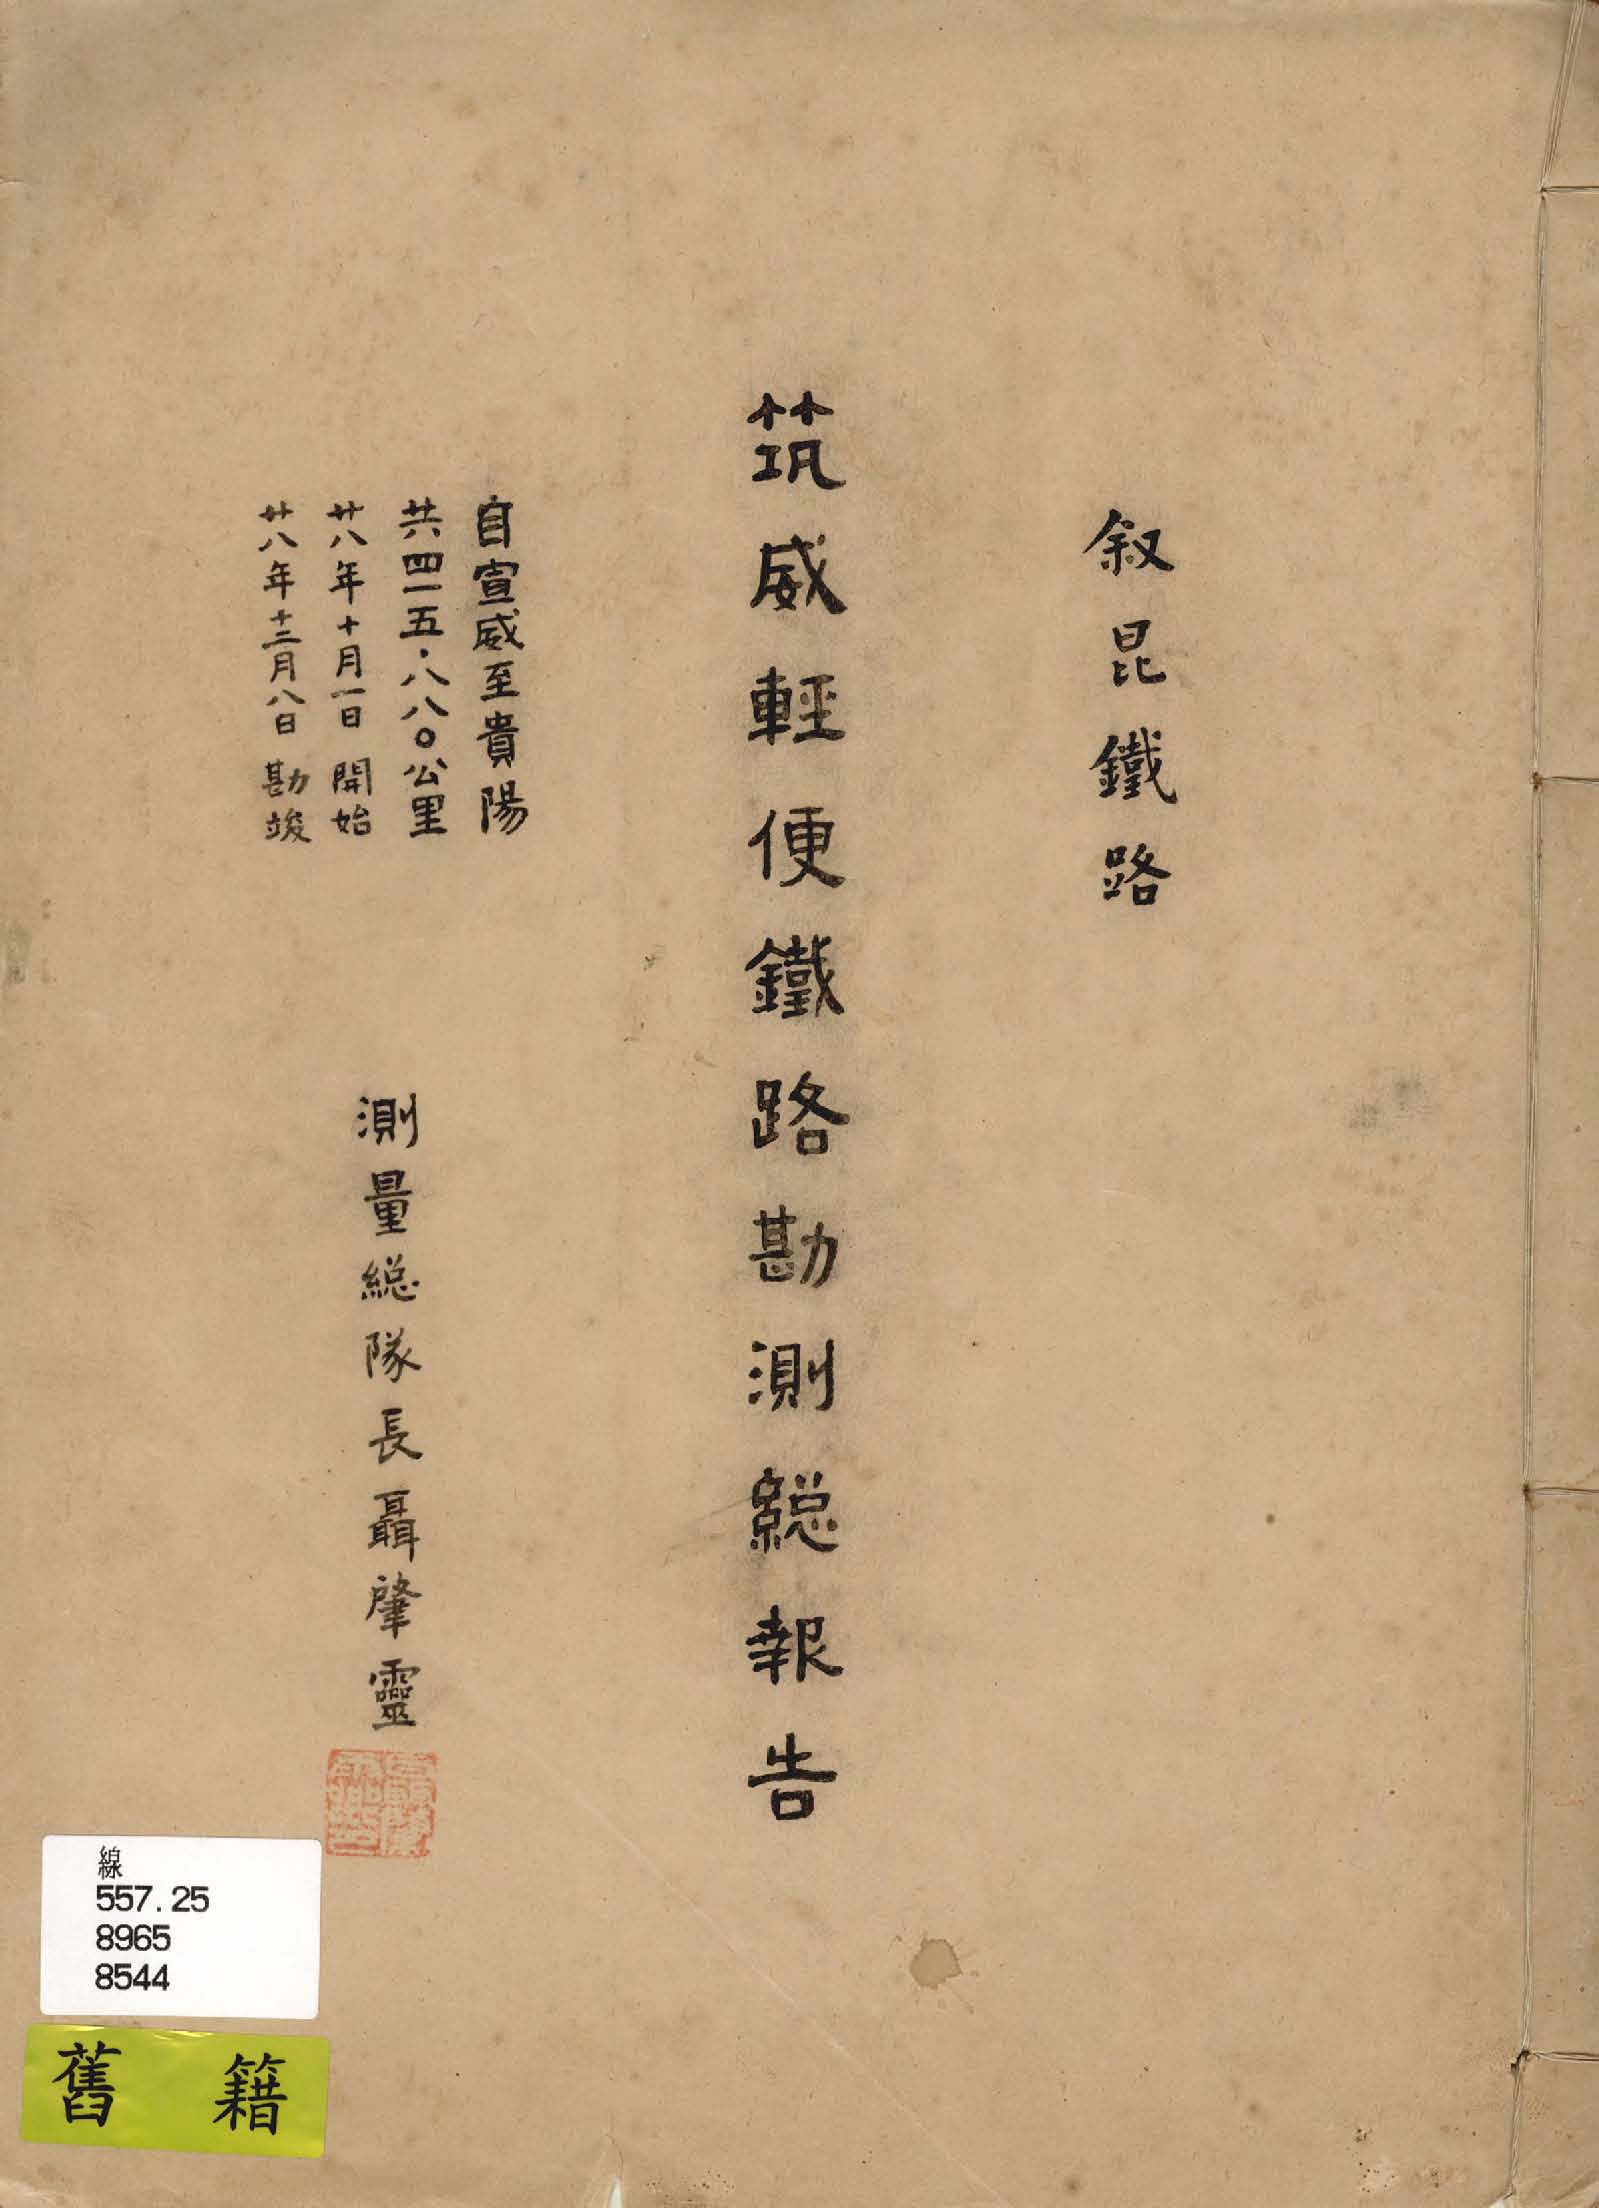 叙昆鐵路
筑威輕便鐵路勘測総報告
自宣威至貴陽
共四一五·八八〇公里
廿八年十月一日開始
廿八年十二月八日勘竣
測量総隊長聶肇靈
線
557.25
8965
8544
舊籍